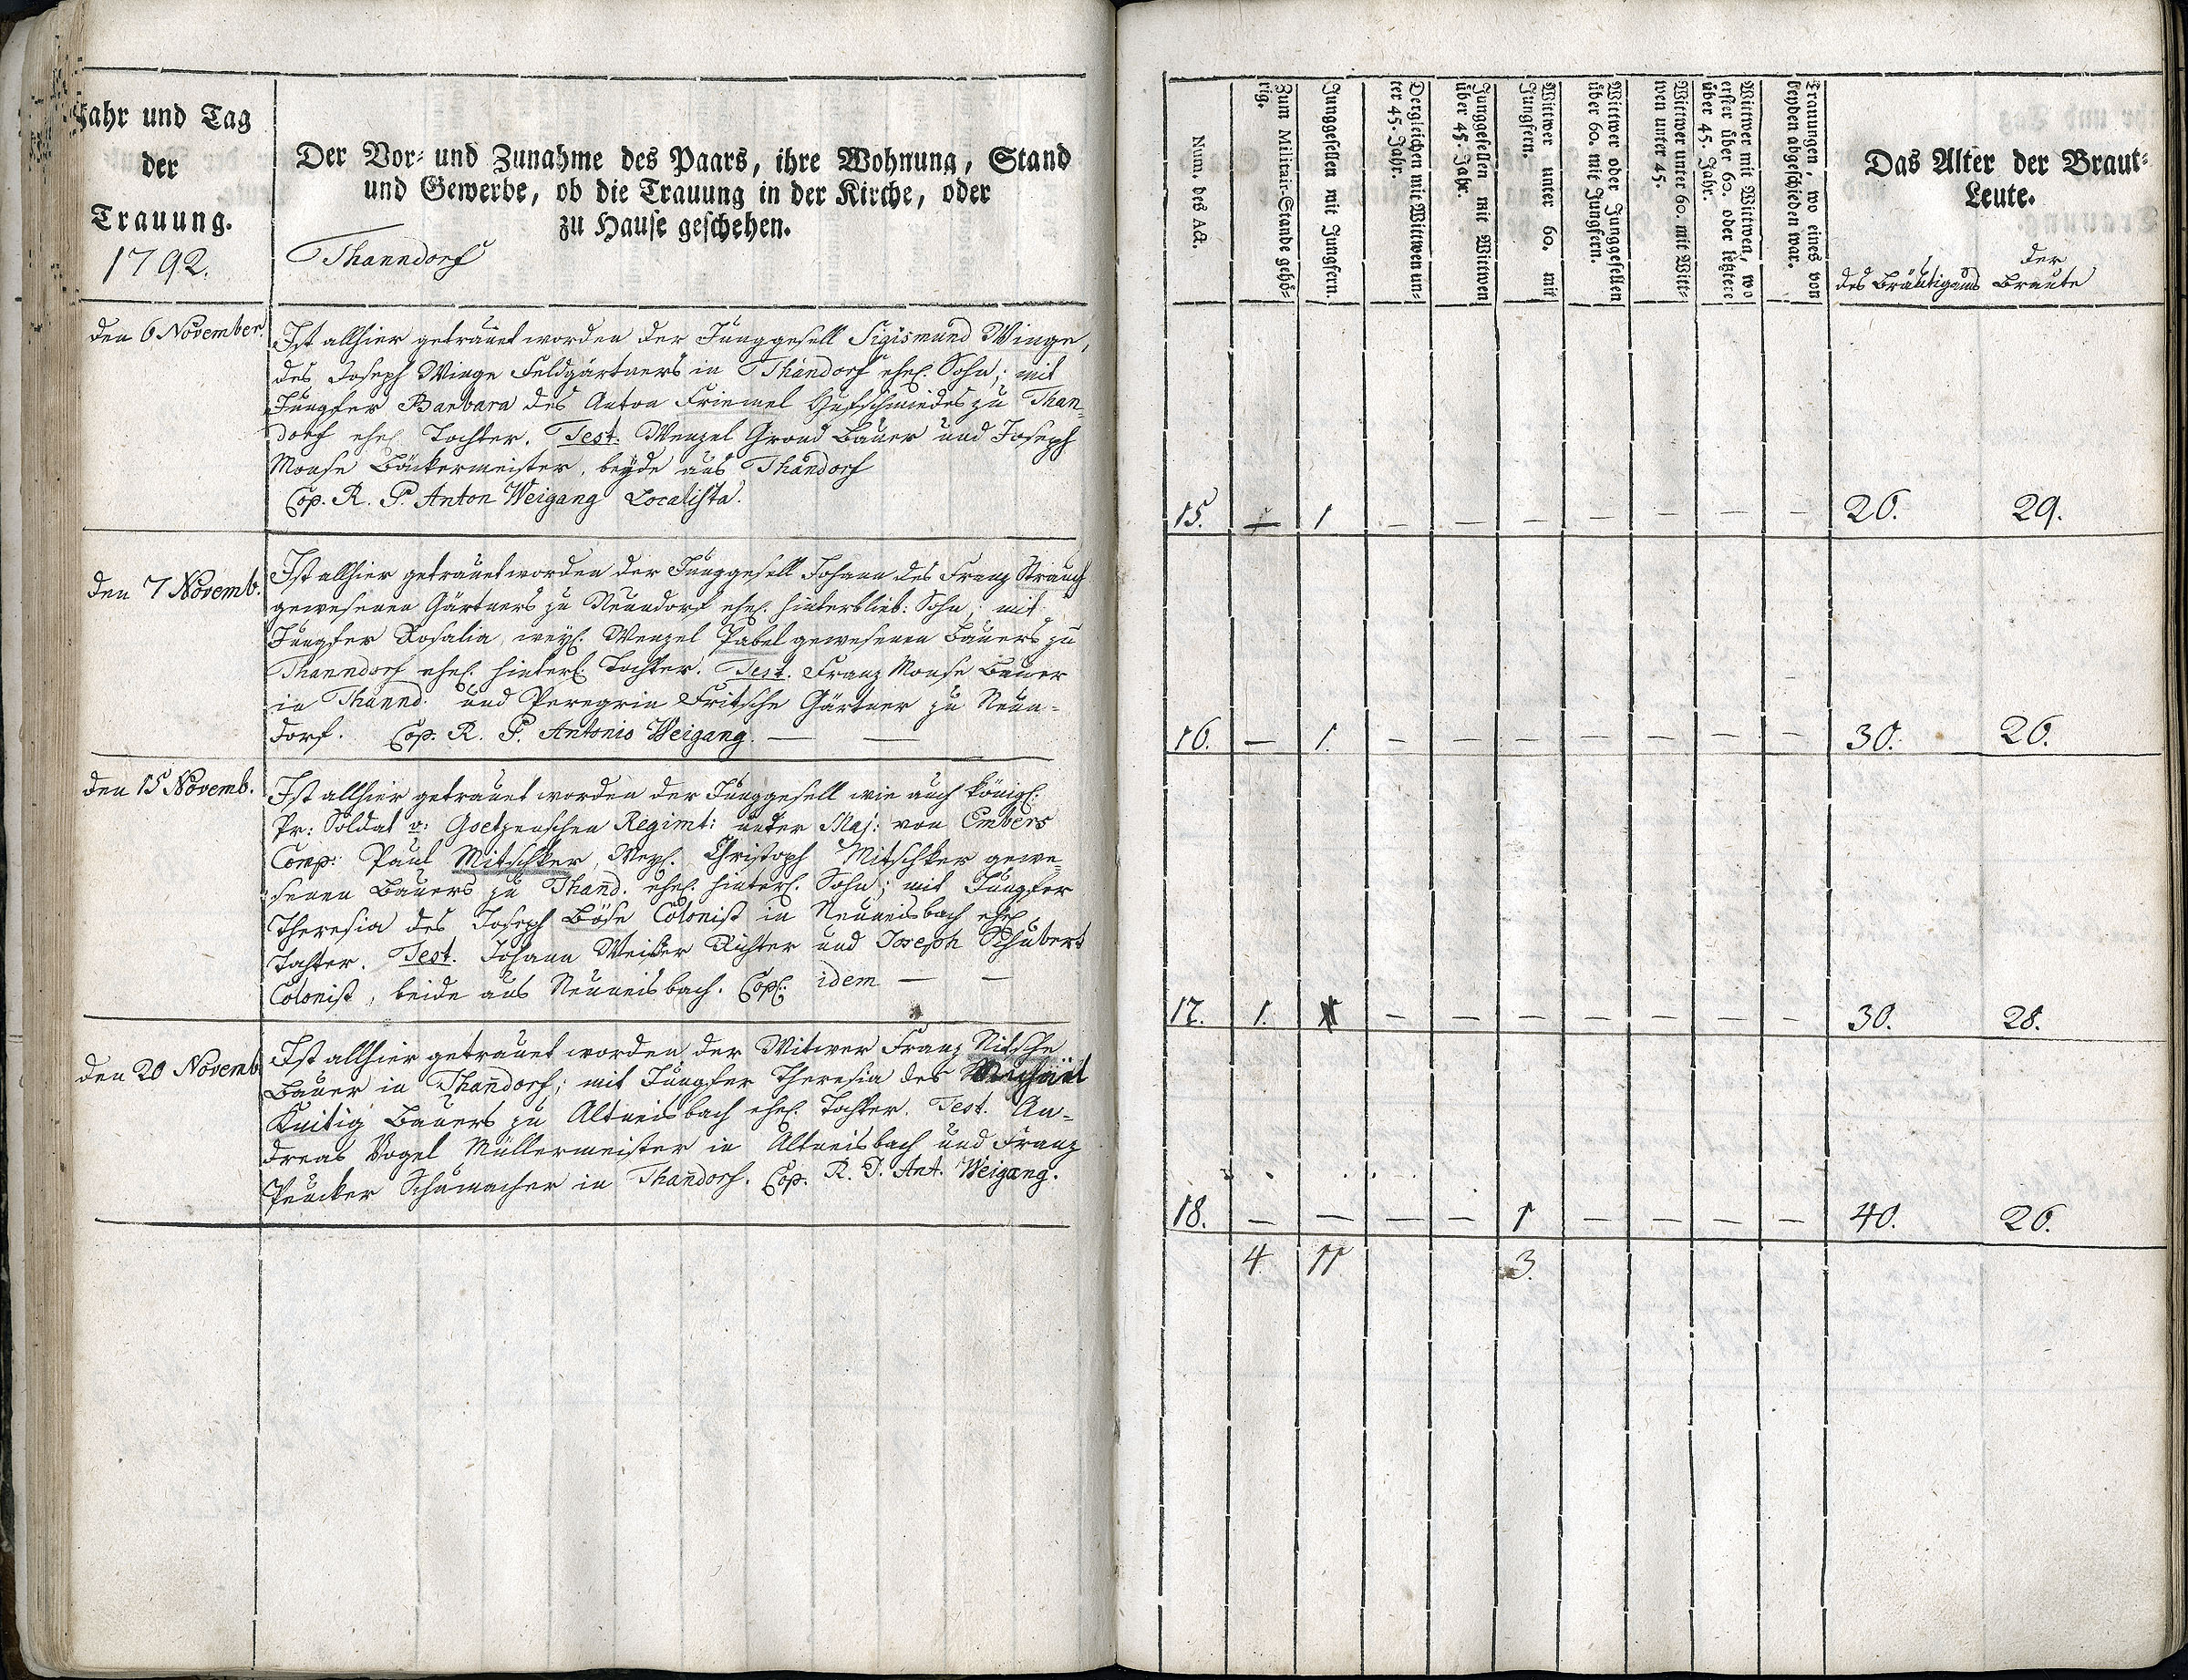 Jahr und Tag
der
Trauung.
1792.
Der Vor- und Zunahme des Paars, ihre Wohnung, Stand
und Gewerbe, ob die Trauung in der Kirche, oder
zu Hause geschehen.
Thanndorf
den 6 November.
Ist allhier getrauet worden der Junggesell Sigismund Winge,
des Joseph Winge Feldgärtners in Thandorf ehel. Sohn; mit
Jungfer Barbara des Anton Friemel Hufschmiedes zu Than-
dorf ehel. Tochter. Test. Wenzel Grond Bauer und Joseph
Monse Bäckermeister, beyde aus Thandorf
Cop. R. P. Anton Weigang Localista.
den 7 Novemb.
Ist allhier getrauet worden der Junggesell Johann des Franz Strauch
gewesenen Gärtners zu Neundorf ehel. hinterblieb: Sohn; mit
Jungfer Rosalia, weyl. Wenzel Pabel gewesenen Bauers zu
Thanndorf ehel. hinterl. Tochter. Test. Franz Monse Bauer
in Thannd. und Peregrin Fritsche Gärtner zu Neun-
dorf. Cop. R. P. Antonio Weigang. — —
den 15 Novemb.
Ist allhier getrauet worden der Junggesell wie auch königl.
Pr: Soldat v: Goetzenschen Regimt: unter Maj: von Embers
Comp: Paul Mitschker, Weyl. Christoph Mitschker gewe-
senen Bauers zu Thand. ehel. hinterl. Sohn; mit Jungfer
Theresia des Joseph Böse Colonist in Neuneisbach ehel.
Tochter. Test. Johann Weiser Richter und Joseph Schubert
Colonist, beide aus Neuneisbach. Cop: idem — —
den 20 Novemb.
Ist allhier getrauet worden der Witwer Franz Nitsche
Bauer in Thandorf; mit Jungfer Theresia des Michael
Knitig Bauers zu Altneisbach ehel. Tochter. Test. An-
dreas Vogel Müllermeister in Altneisbach und Franz
Peucker Schumacher in Thandorf. Cop. R. P. Ant. Weigang.
Num. des Act.
Zum Militair-Stande gehö-
rig.
Junggesellen mit Jungfern.
Dergleichen mit Wittwen un-
ter 45. Jahr.
Junggesellen mit Wittwen
über 45. Jahr.
Wittwer unter 60. mit
Jungfern.
Wittwer oder Junggesellen
über 60. mit Jungfern.
Wittwer unter 60. mit Witt-
wen unter 45.
Wittwer mit Wittwen, wo
erster über 60. oder letztere
über 45. Jahr.
Trauungen, wo eines von
beyden abgeschieden war.
Das Alter der Braut-
Leute.
des Bräutigams
der
Braute
15. — 1 — — — — — — — 26. 29.
16. — 1. — — — — — — — 30. 26.
17. 1. 1 — — — — — — — 30. 28.
18. — — — — 1 — — — — 40. 26.
4 11 3.